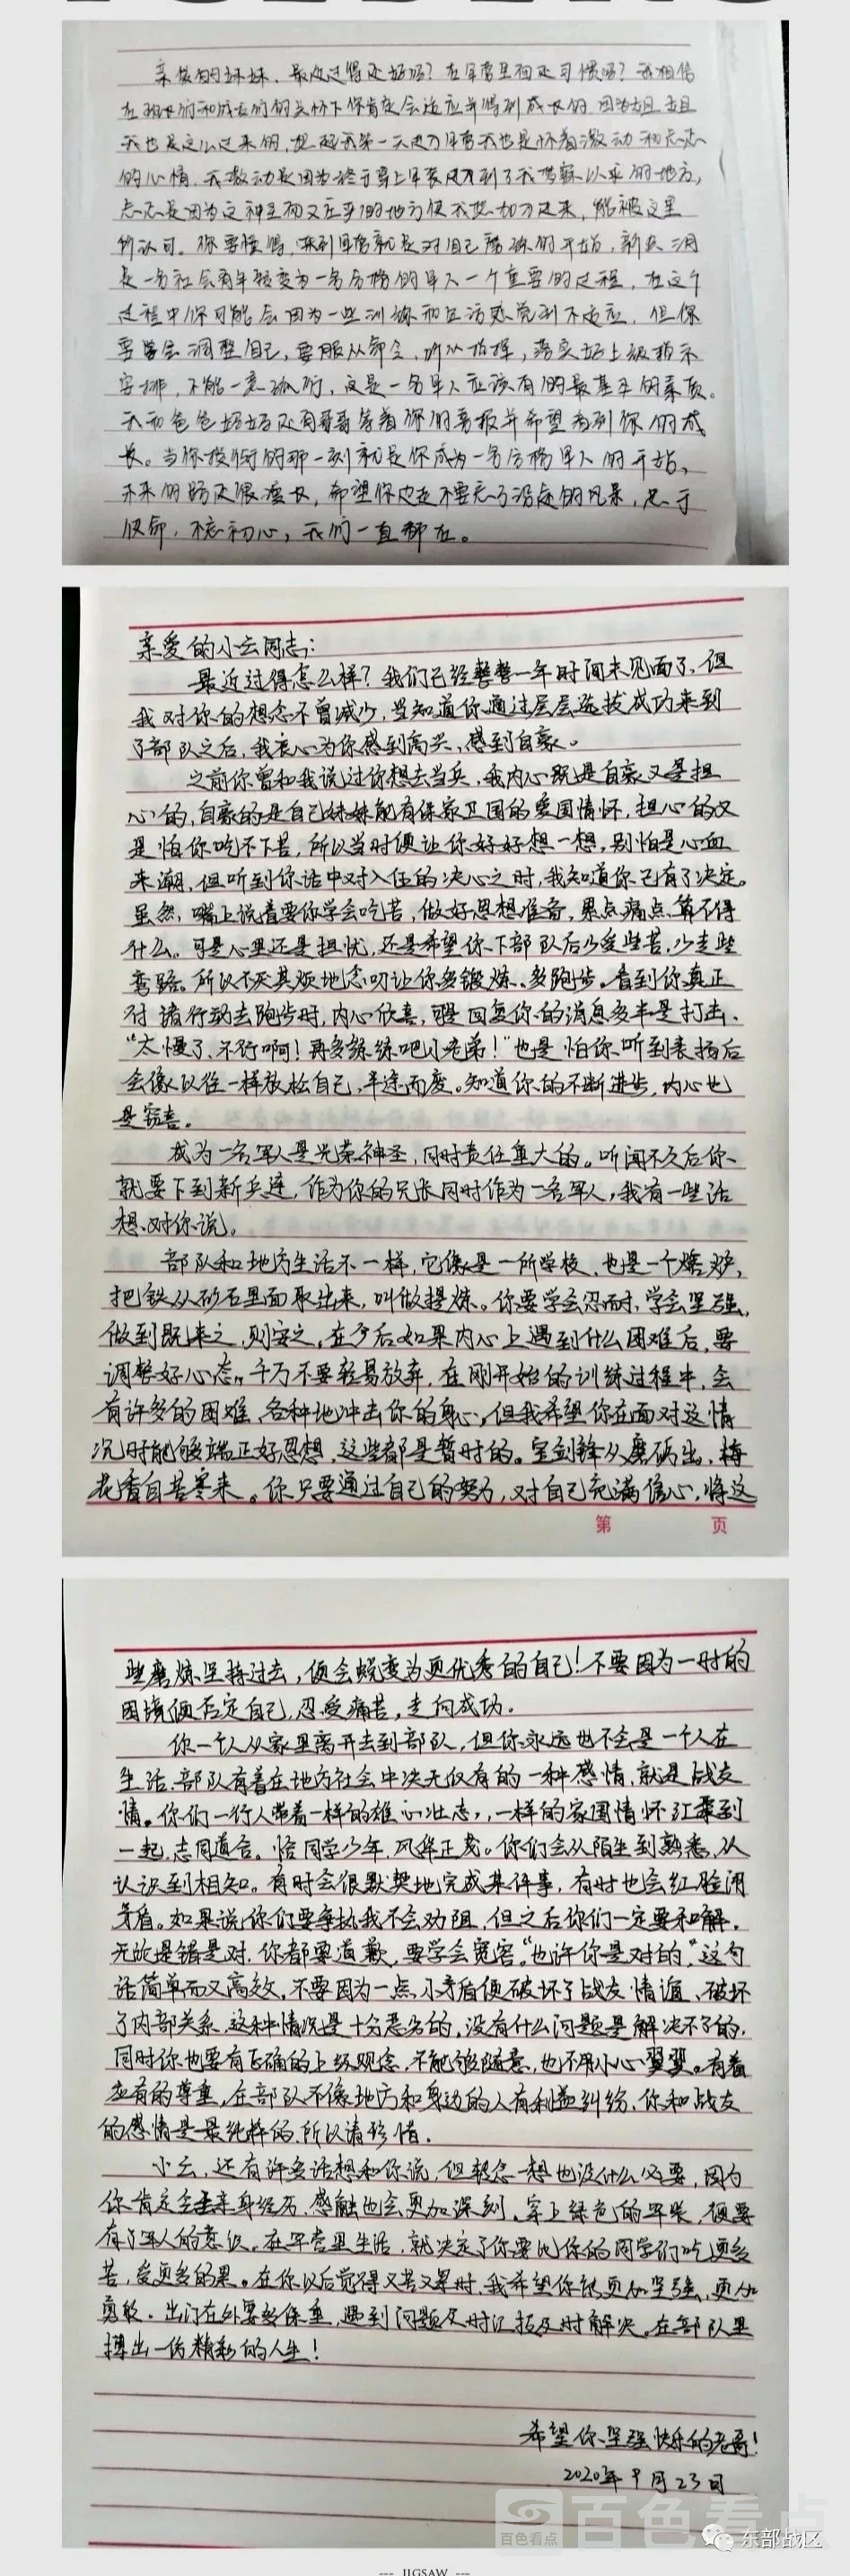 亲爱的妹妹，最近过得还好吗？在军营里面还习惯吗？我相信
在班长们和战友们的关怀下你肯定会适应并得到成长的，因为姐姐
我也是这么过来的，想起我第一天进入军营我也是怀着激动和忐忑
的心情，我激动是因为终于穿上军装来到了我梦寐以求的地方，
忐忑是因为这神圣而又庄严的地方使我想加入进来，能被这里
所认可。你要懂得，来到军营就是对自己磨练的开始，新兵周
是一名社会青年转变为一名合格的军人一个重要的过程，在这个
过程中你可能会因为一些训练和生活感觉到不适应，但你
要学会调整自己，要服从命令，听从指挥，落实好上级指示
安排，不能一意孤行，这是一名军人应该有的最基本的素质。
我和爸爸妈妈还有哥哥等着你的喜报并希望看到你的成
长。当你授衔的那一刻就是你成为一名合格军人的开始，
未来的路还很漫长，希望你边走不要忘了沿途的风景，忠于
使命，不忘初心，我们一直都在。
亲爱的小云同志：
最近过得怎么样？我们已经整整一年时间未见面了，但
我对你的想念不曾减少，当知道你通过层层选拔成功来到
了部队之后，我衷心为你感到高兴、感到自豪。
之前你曾和我说过你想去当兵，我内心既是自豪又是担
心的，自豪的是自己妹妹能有保家卫国的爱国情怀，担心的又
是怕你吃不下苦，所以当时便让你好好想一想，别怕是心血
来潮，但听到你话中对入伍的决心之时，我知道你已有了决定。
虽然，嘴上说着要你学会吃苦，做好思想准备，累点痛点算不得
什么。可是心里还是担忧，还是希望你下部队后少受些苦，少走些
弯路。所以不厌其烦地念叨让你多锻炼、多跑步。看到你真正
付诸行动去跑步时，内心欣喜，可是回复你的消息多半是打击、
“太慢了、不行啊！再多练练吧小老弟！”也是怕你听到表扬后
会像以往一样放松自己，半途而废。知道你的不断进步，内心也
是窃喜。
成为一名军人是光荣神圣，同时责任重大的。听闻不久后你
就要下到新兵连，作为你的兄长同时作为一名军人，我有一些话
想对你说。
部队和地方生活不一样，它像是一所学校，也是一个熔炉，
把铁从砂石里面取出来，叫做提炼。你要学会忍耐，学会坚强，
做到既来之，则安之。在今后如果内心上遇到什么困难后，要
调整好心态，千万不要轻易放弃，在刚开始的训练过程中，会
有许多的困难，各种地冲击你的身心，但我希望你在面对这情
况时能够端正好思想，这些都是暂时的。宝剑锋从磨砺出，梅
花香自苦寒来。你只要通过自己的努力，对自己充满信心，将这
第 页
些磨炼坚持过去，便会蜕变为更优秀的自己！不要因为一时的
困境便否定自己，忍受痛苦，走向成功。
你一个人从家里离开去到部队，但你永远也不会是一个人在
生活，部队有着在地方社会中决无仅有的一种感情，就是战友
情。你们一行人带着一样的雄心壮志，一样的家国情怀汇聚到
一起，志同道合。恰同学少年，风华正茂。你们会从陌生到熟悉，从
认识到相知。有时会很默契地完成某件事，有时也会红脸闹
矛盾。如果说你们要争执我不会劝阻，但之后你们一定要和解，
无论是错是对，你都要道歉，要学会宽容，“也许你是对的”，这句
话简单而又高效，不要因为一点小矛盾便破坏了战友情谊、破坏
了内部关系，这种情况是十分恶劣的，没有什么问题是解决不了的，
同时你也要有正确的上级观念，不能够随意，也不用小心翼翼。有着
应有的尊重，在部队不像地方和身边的人有利益纠纷，你和战友
的感情是最纯粹的，所以请珍惜。
小云，还有许多话想和你说，但转念一想也没什么必要，因为
你肯定会去亲身经历，感触也会更加深刻。穿上绿色的军装，便要
有了军人的意识。在军营里生活，就决定了你要比你的同学们吃更多
苦，受更多的累。在你以后觉得又苦又累时，我希望你能更加坚强，更加
勇敢。出门在外要多保重，遇到问题及时汇报及时解决，在部队里
搏出一份精彩的人生！
希望你坚强快乐的老哥！
2020年9月23日
百色看点
百色看点
东部战区
--- JIGSAW ---